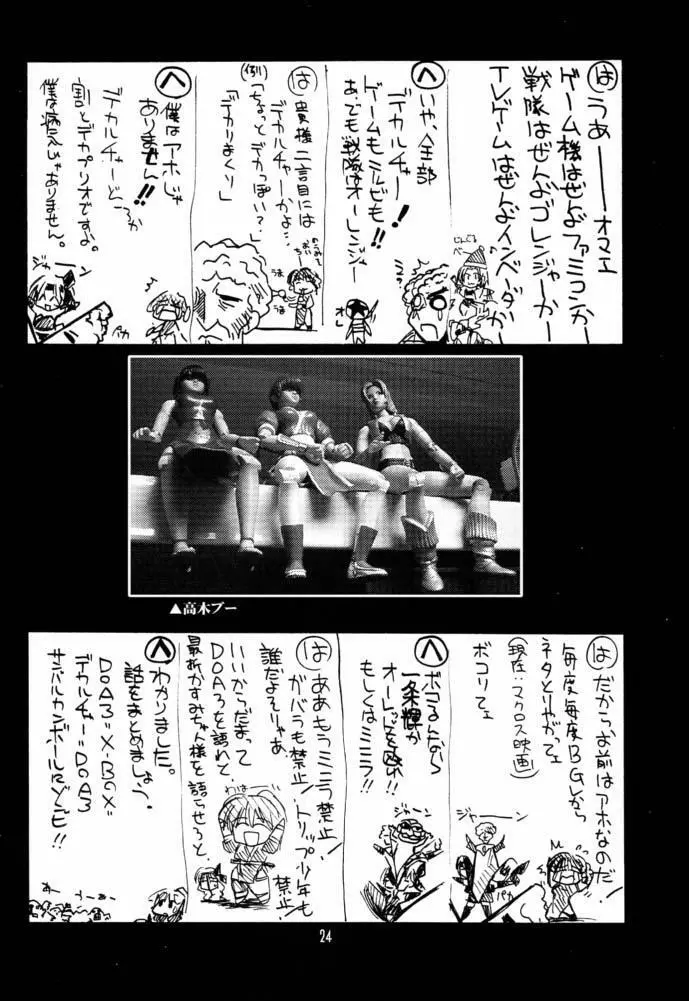 は
うあーーオマエ
ゲーム機はぜんぶファミコンかー
戦隊はぜんぶゴレンジャーかー
テレゲームはぜんぶインベーダーかー
へ
いや、全部
デカルチャー!
ゲームもミルピも!!
あ、でも戦隊はオーレンジャー
オレ
は
貴様二言目には
デカルチャーかよ…
(例)
「ちょっとデカっぽい?」
「デカりまくり」
へ
僕はアホじゃ
ありません!!
デカルチャーどころか
割とデカプリオですよ。
僕は病人じゃありません。
ジャーン
パカ
▲高木ブー
は
だからお前はアホなのだ!
毎度毎度BGVから
ネタとりやがってェ
(現在:マクロス映画)
ボコリてェ
ジャーン
パカ
へ
ボコるんなら
一条輝か
オーレッドを殴れ!!
もしくはミニラ!!
ジャーン
は
ああもうミニラ禁止!
ガバラも禁止!トリップ少年も禁止!
誰だよそりゃあ
いいからだまって
DOA3を語れて
最新かすみちゃん様を語らせろと
わは
へ
わかりました。
話をまとめましょう。
DOA3=X-BOX=
デカルチャー=DOA3
サンバルカンボールRゾビ!!
24